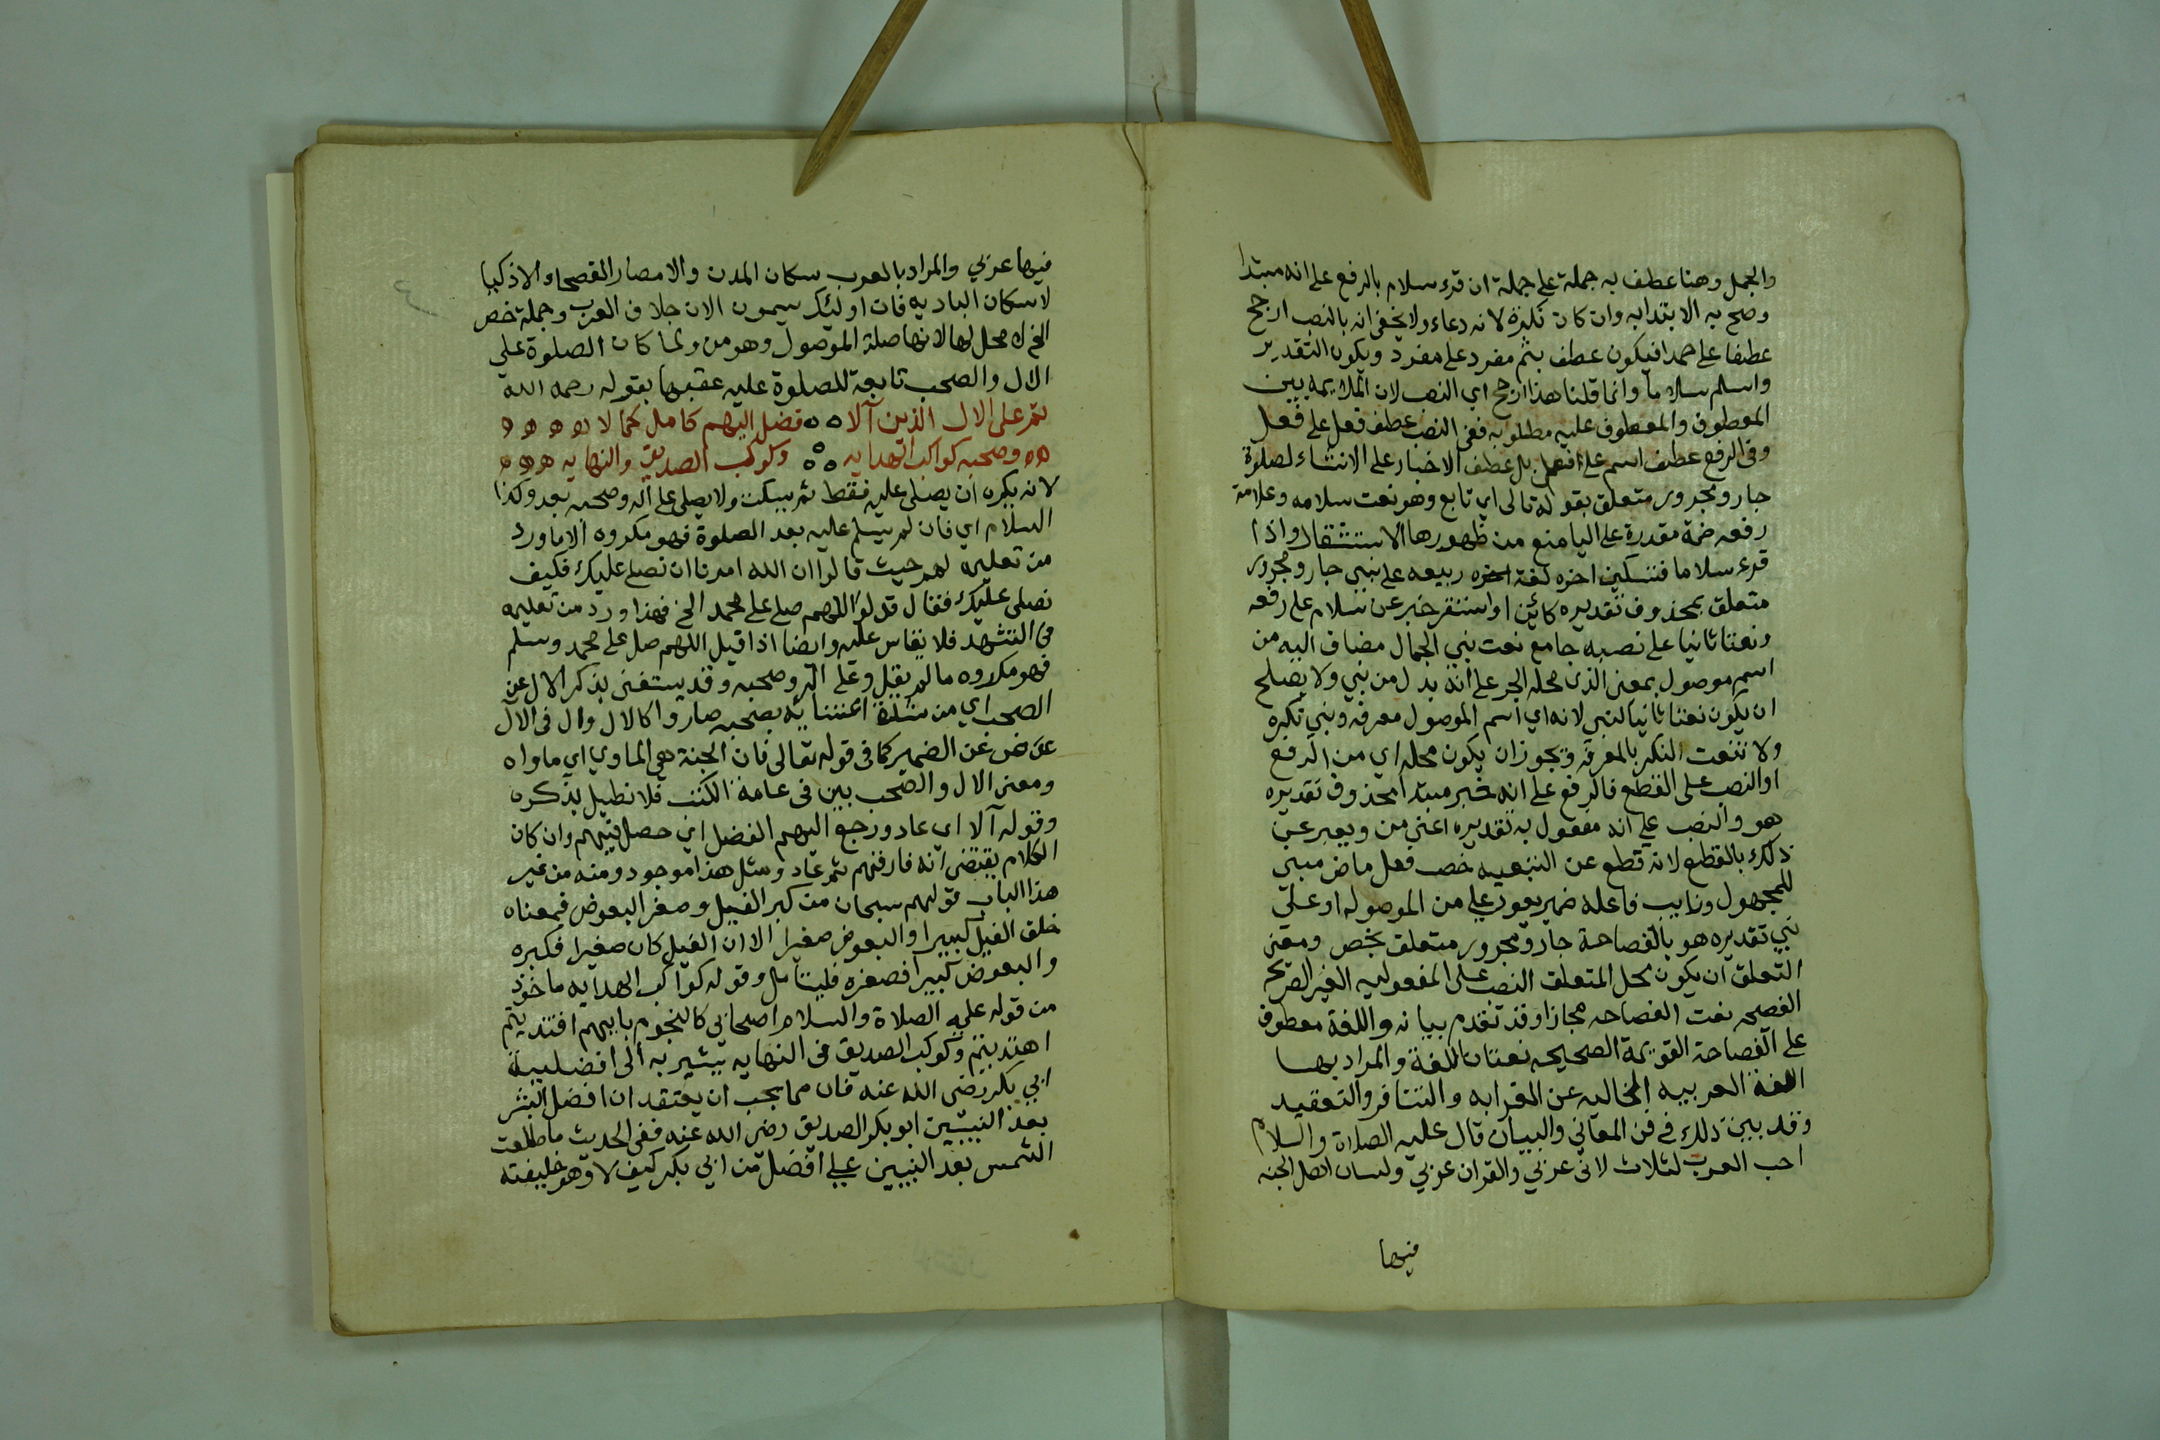 والجمل وهنا عطف به جملة على جملة ان قرء سلام بالرفع على انه مبتدا
وصح به الابتدا به وان كان نكرة لانه دعاء ولا يخفى انه بالنصب ارجح
عطفا على حمدا فيكون عطف بثم مفرد على مفرد ويكون التقدير
واسلم سلاما وانما قلنا هذا ارجح اي النصب لان الملايمه بين
المعطوف والمعطوف عليه مطلوبه ففى النصب عطف فعل على فعل
وفى الرفع عطف اسم على فعل بل عطف الاخبار على الانشاء لصلوة
جار ومجرور متعلق بقوله تالى اي تابع وهو نعت سلامه وعلامة
رفعه ضمة مقدرة على اليا منع من ظهورها الاستثقال واذا
قرء سلاما فتسكين اخره لغة ربيعه على بنى جار ومجرور
متعلق بمحذوف تقديره كائن او استقر خبر عن سلام على رفعه
ونعتا ثانيا على نصبه جامع نعت بني الجمال مضاف اليه من
اسم موصول بمعنى الذى محله الجر على انه بدل من نبي ولا يصلح
ان يكون نعتا ثانيا لنبي لانه اي اسم الموصول معرفه ونبي نكره
ولا تنعت النكره بالمعرفه ويجوز ان يكون محله اي من الرفع
او النصب على القطع فالرفع على انه خبر مبتدا محذوف تقديره
هو والنصب على انه مفعول به تقديره اعنى من ويعبر عن
ذلك بالقطع لانه قطع عن التبعيه خص فعل ماض مبني
للمجهول ونايب فاعله ضمير يعود على من الموصوله او على
نبي تقديره هو بالفصاحة جار ومجرور متعلق بخص ومعنى
التعلق ان يكون محل المتعلق النصب على المفعوليه الغير الصريح
الفصحه نعت الفصاحه مجازا وقد تقدم بيانه واللغة معطوف
على الفصاحة القويمة الصحيحه نعتان للغة والمراد بها
اللغة العربيه الخاليه عن الغرابه والتنافر والتعقيد
وقد بين ذلك في فن المعاني والبيان قال عليه الصلاة والسلام
احب العرب لثلاث لانى عربي والقران عربي ولسان اهل الجنه
فيها
فيها عربي والمراد بالعرب سكان المدن والامصار الفصحاء الاذكيا
لا سكان الباديه فان اوليك يسمون الان جلاف العرب وجملة خص
الخ لا محل لها لانها صلة الموصول وهو من ولما كان الصلوة على
الال والصحب تابعة للصلوة عليه عقبها بقوله رحمه الله
ثم على الال الذين آلا فضل اليهم كامل كمالا
وصحبه كواكب الهدايه وكوكب الصديق والنهايه
لانه يكره ان يصلى عليه فقط ثم يسكت ولا يصلى على آله وصحبه بعد وكذا
السلام اي فان لم يسلم عليه بعد الصلوة فهو مكروه الا ما ورد
من تعليمه لهم حيث قالوا ان الله امرنا ان نصلى عليك فكيف
نصلى عليك فقال قولوا اللهم صلى على محمد الخ فهذا ورد من تعليمه
فى التشهد فلا يقاس عليه وايضا اذا قيل اللهم صل على محمد وسلم
فهو مكروه ما لم يقبل وعلى آله وصحبه وقد يستغنى بذكر الال عن
الصحب اي من شدة اعتنائه بصحبه صاروا كالال وال فى الال
عوض عن الضمير كما فى قوله تعالى فان الجنة هي الماوي اي ماواه
ومعنى الال والصحب بين فى عامة الكتب فلا نطيل بذكره
وقوله آلا اي عاد ورجع اليهم الفضل اي حصل فيهم وان كان
الكلام يقتضى انه فارقهم ثم عاد ومثل هذا موجود ومنه من غير
هذا الباب قولهم سبحان من كبر الفيل وصغر البعوض فمعناه
خلق الفيل كبيرا والبعوض صغيرا لا ان الفيل كان صغيرا فكبره
والبعوض كبيرا فصغره فليتامل وقوله كواكب الهدايه ماخوذ
من قوله عليه الصلاة والسلام اصحابي كالنجوم بايهم اقتديتم
اهتديتم وكوكب الصديق فى النهايه يشير به الى افضلية
ابي بكر رضى الله عنه فان مما يجب ان يعتقد ان افضل البشر
بعد النبيين ابو بكر الصديق رضى الله عنه ففى الحديث ما طلعت
الشمس بعد النبيين على افضل من ابي بكر كيف لا وهو خليفته